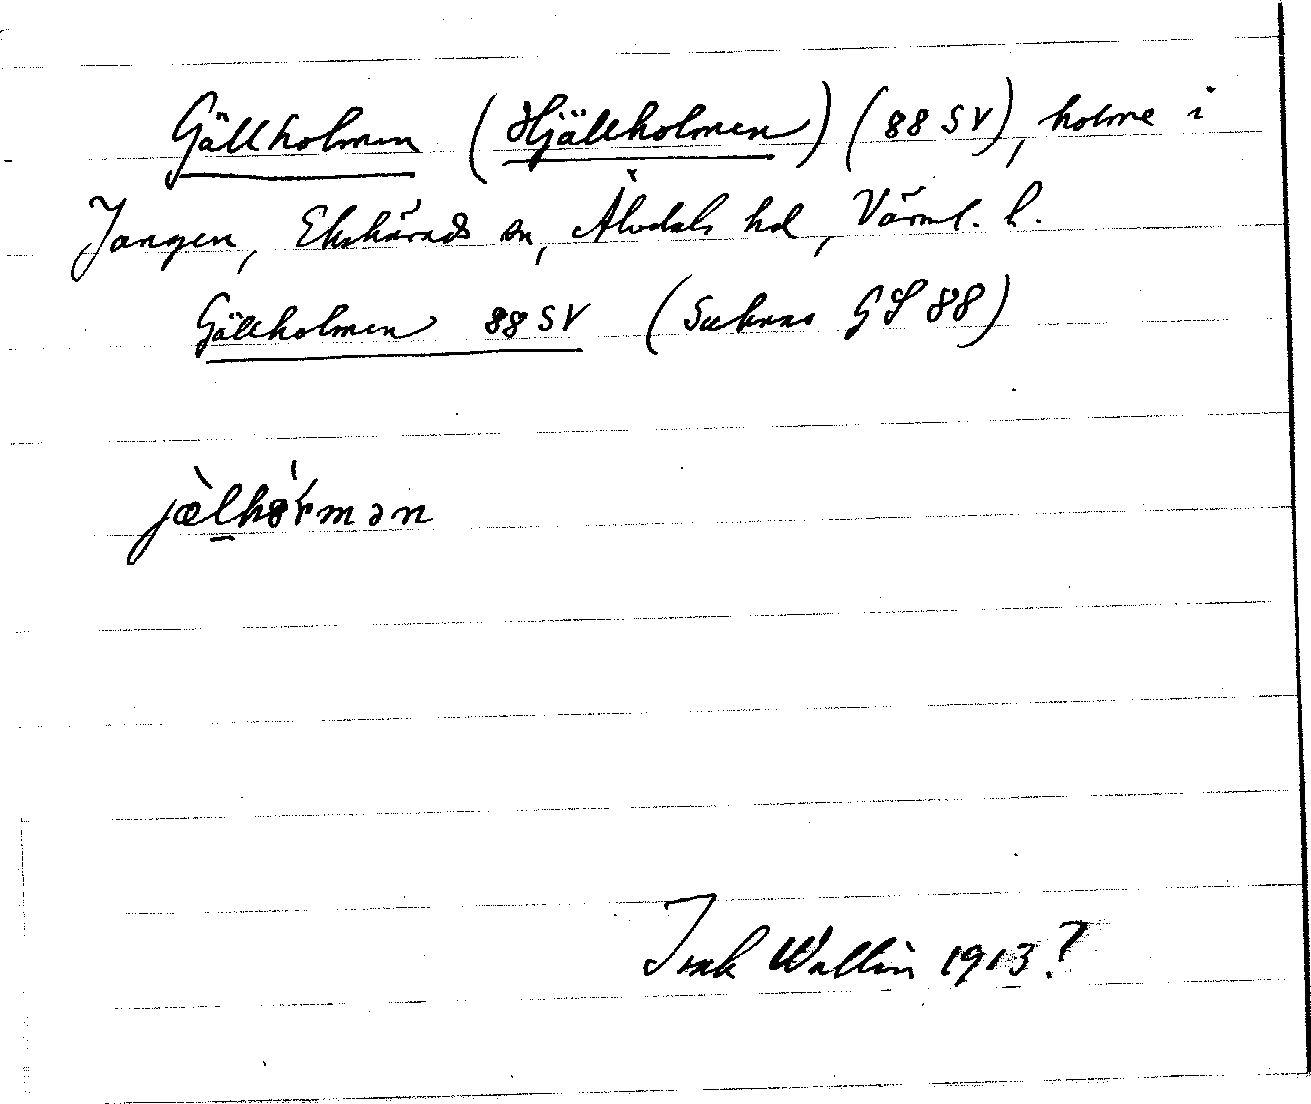 Gällholmen (Hjällholmen) (88 SV), holme i
Jangen, Ekshärads sn, Älvdals hd, Värml. l.
Gällholmen 88 SV (Saknas GS 88)
Isak Wallin 1913?